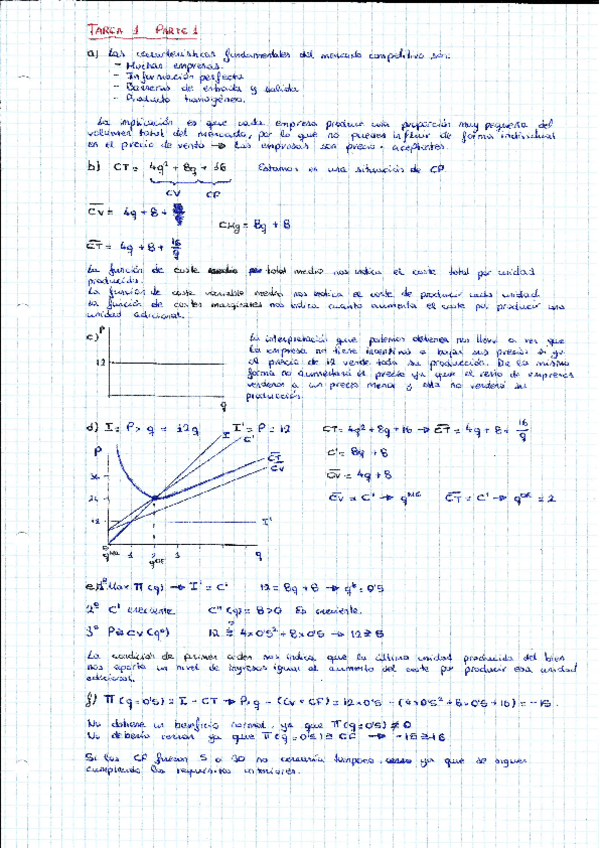 TAREA 1 PARTE 1
a) Las características fundamentales del mercado competitivo son:
- Muchas empresas.
- Información perfecta
- Barreras de entrada y salida
- Producto homogéneo.
La implicación es que cada empresa produce una proporción muy pequeña del
volumen total del mercado, por lo que no pueden influir de forma individual
en el precio de venta → Las empresas son precio-aceptantes.
b) CT = 4q² + 8q + 16 Estamos en una situación de CP
CV CF
CV = 4q + 8 CMg = 8q + 8
CT = 4q + 8 + 16/q
La función de coste total medio nos indica el coste total por unidad
producida.
La función de coste variable medio nos indica el coste de producir cada unidad
La función de costes marginales nos indica cuanto aumenta el coste por producir una
unidad adicional.
c) P
12
q
La interpretación que podemos obtener nos lleva a ver que
la empresa no tiene incentivos a bajar sus precios si ya
al precio de 12 vende toda su producción. De la misma
forma no aumentará el precio ya que el resto de empresas
venderán a un precio menor y esta no venderá su
producción.
d) I = P × q = 12q I' = P = 12
CT = 4q² + 8q + 16 → CT = 4q + 8 + 16/q
C' = 8q + 8
CV = 4q + 8
CV = C' → qᴹᴱ CT = C' → qᴼᴱ = 2
P
I
C'
CT
CV
36
24
12
I'
0
1
2
q
e) 1º Max π(q) → I' = C' 12 = 8q + 8 → q* = 0'5
2º C' creciente C''(q) = 8 > 0 Es creciente.
3º P ≥ CV(q*) 12 ≥ 4×0'5² + 8×0'5 → 12 ≥ 6
La condición de primer orden nos indica que la última unidad producida del bien
nos aporta un nivel de ingresos igual al aumento del coste por producir esa unidad
adicional.
f) π(q=0'5) = I - CT → P×q - (CV + CF) = 12×0'5 - (4×0'5² + 8×0'5 + 16) = -15.
No obtiene un beneficio normal, ya que π(q=0'5) ≠ 0
No debería cerrar ya que π(q=0'5) ≥ CF → -15 ≥ -16
Si los CF fueran 5 o 30 no cerraría tampoco, ya que se siguen
cumpliendo los requisitos anteriores.